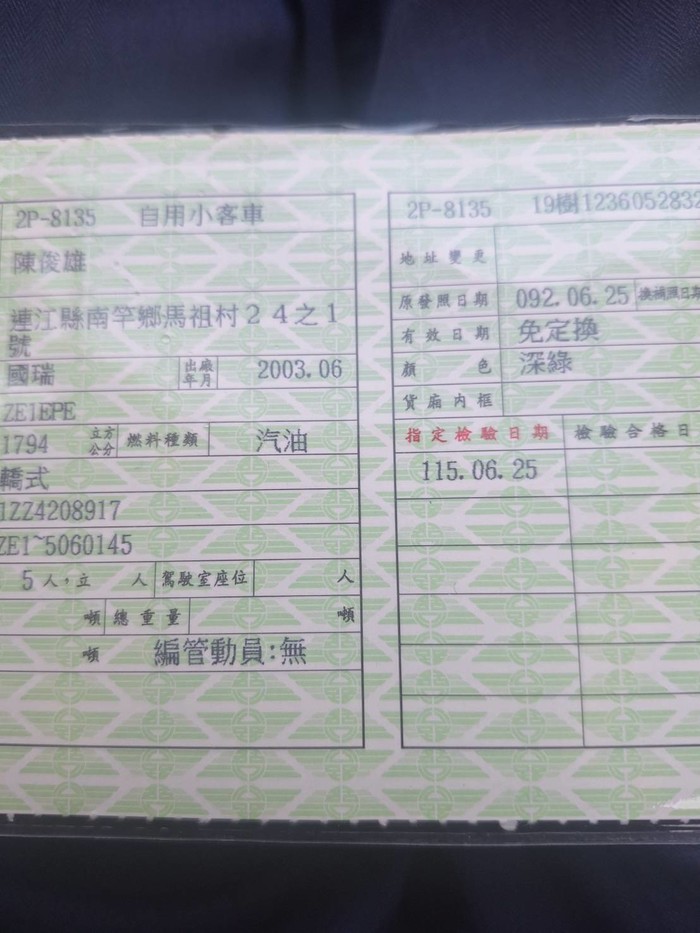 2P-8135 自用小客車
陳俊雄
連江縣南竿鄉馬祖村２４之１
號
國瑞 出廠年月 2003.06
ZE1EPE
1794 立方公分 燃料種類 汽油
轎式
1ZZ4208917
ZE1~5060145
5 人,立 人 駕駛室座位 人
噸 總重量 噸
噸 編管動員:無
2P-8135 19樹1236052832
地址變更
原發照日期 092.06.25 換補照日期
有效日期 免定換
顏色 深綠
貨廂內框
指定檢驗日期 檢驗合格日
115.06.25